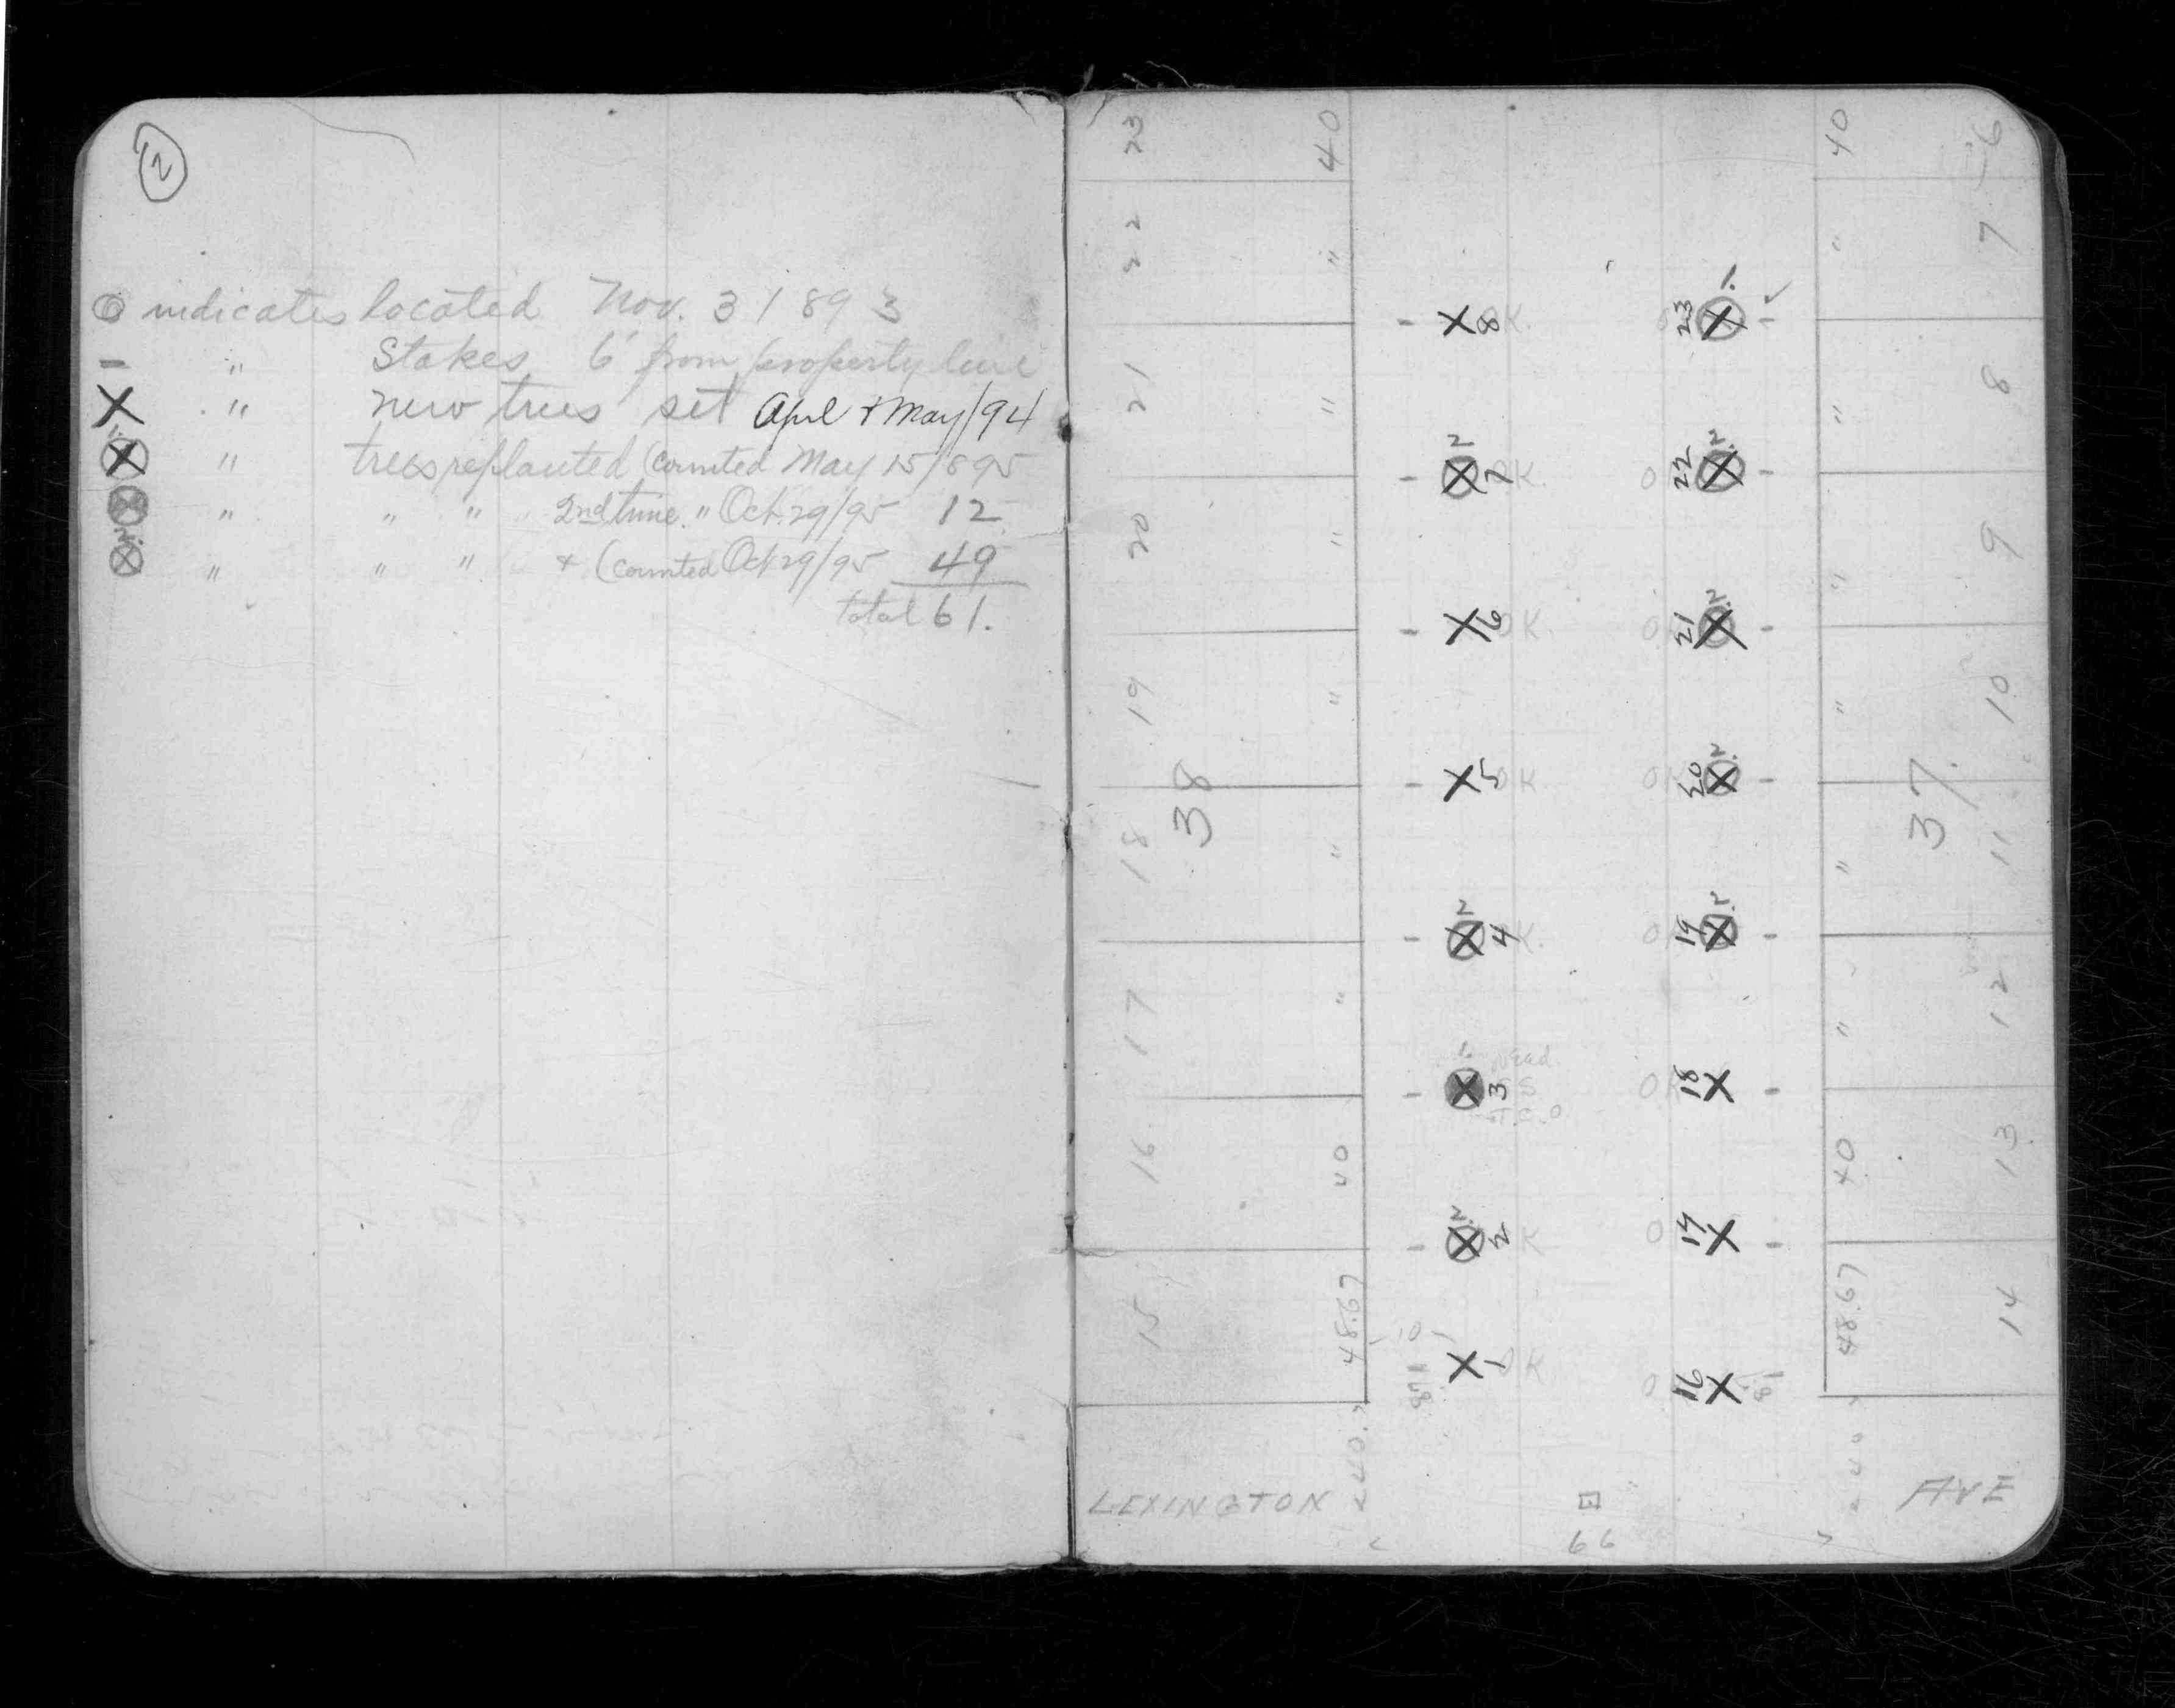 2
indicates located Nov. 3 1893
– " Stakes 6' from property line
X " new trees set April + May/94
" trees replanted (counted May 15/895
" " " 2nd time " Oct. 29/95 12
" " " + (counted Oct 29/95 49
total 61.
23 40 40 6
22 " " 7
X 8 OK. 23 1.
21 " " 8
2 7 OK. O 22 2.
20 " " 9
X 6 OK. O 21 2.
19 " " 10
X 5 OK O 20 2.
38 37.
18 " " 11
2 4 K. O 19 2.
17 " " 12
1. 3 Dead O 18 X
16 40 40 13
2. 2 K O 17 X
15 48.67 48.67 14
10
X 1 OK O 16 X
40. 40
LEXINGTON AVE
66